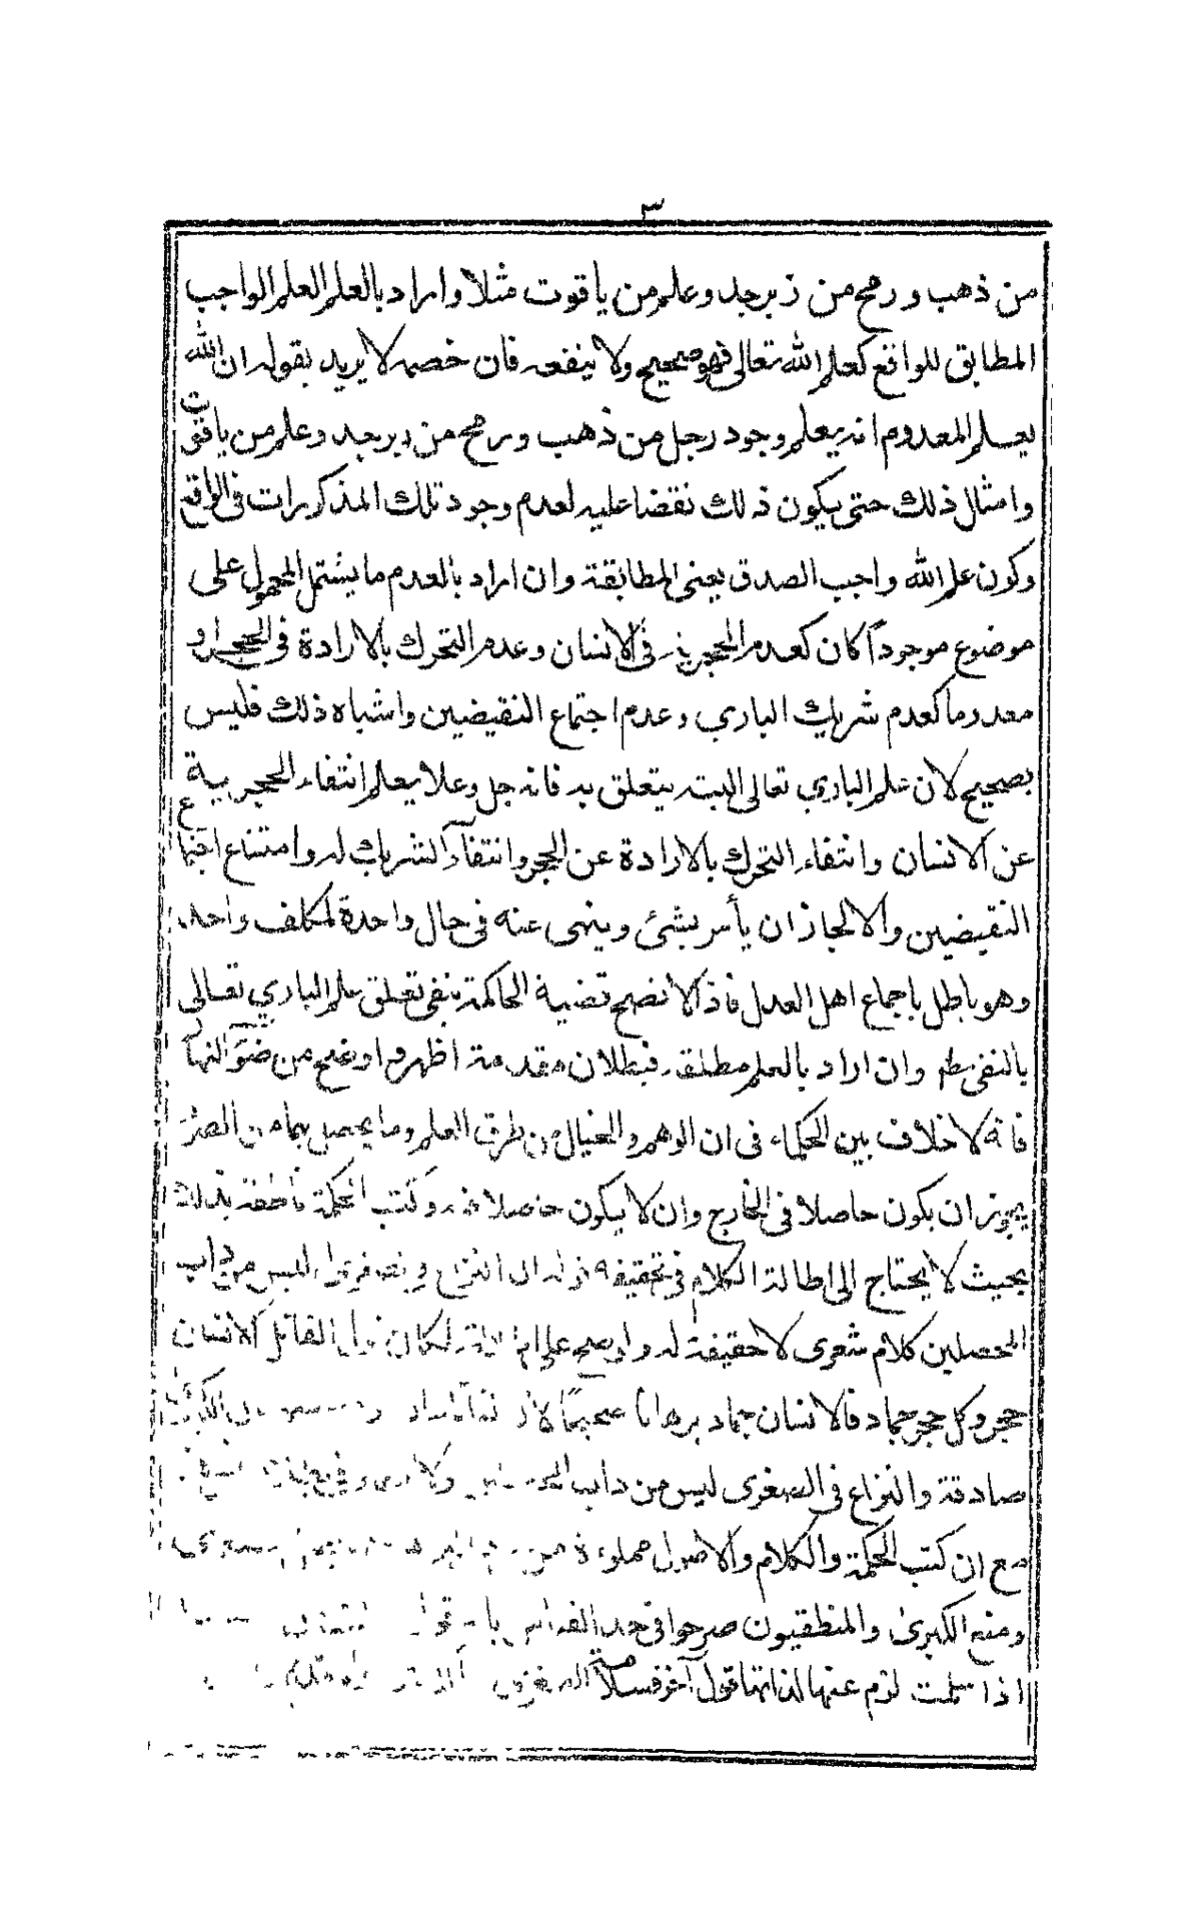 ٣
من ذهب و رمح من زبرجد وعلم من ياقوت مثلا واراد بالعلم العلم الواجب
المطابق للواقع كعلم الله تعالى فهو صحيح ولا ينفعه فان خصمه لا يريد بقوله ان الله
يعلم المعدوم انه يعلم وجود رجل من ذهب و رمح من زبرجد وعلم من ياقوت
وامثال ذلك حتى يكون ذلك نقضا عليه لعدم وجود تلك المذكورات فى الواقع
وكون علم الله واجب الصدق يعنى المطابقة وان اراد بالعدم ما يشتمل المحمول على
موضوع موجوداً كان كعدم الحجرية فى الانسان وعدم التحرك بالارادة فى الحجر او
معدوما كعدم شريك الباري وعدم اجتماع النقيضين واشباه ذلك فليس
بصحيح لان علم الباري تعالى البتة يتعلق به فانه جل وعلا يعلم انتفاء الحجرية
عن الانسان وانتفاء التحرك بالارادة عن الحجر وانتفآء الشريك له وامتناع اجتماع
النقيضين والا لجاز ان يأمر بشئ وينهى عنه فى حال واحدة لمكلف واحد
وهو باطل باجماع اهل العدل فاذ لا تصح قضية الحاكمة بنفى تعلق علم الباري تعالى
بالنفى وان اراد بالعلم مطلقه فبطلان مقدمة اظهر واوضح من ضوء النهار
فانه لا خلاف بين الحكماء فى ان الوهم والخيال من طرق العلم وما يحصل بهما من الصور
يجوز ان يكون حاصلا فى الخارج وان لا يكون حاصلا فيه وكتب الحكمة ناطقة بذلك
بحيث لا يحتاج الى اطالة الكلام فى تحقيقه قوله ان النزاع ليس من داب
المحصلين كلام شعرى لا حقيقة له ولو صح على لكان قول القائل الانسان
حجر وكل حجر جماد فالانسان جماد برهانا صحيحاً لان
صادقة والنزاع فى الصغرى ليس من داب
مع ان كتب الحكمة والكلام والاصول مملوءة من
ومنع الكبرى والمنطقيون صرحوا فى حد القياس بانه قول
اذا سلمت لزم عنها لذاتها قول آخر فسلامة الصغرى